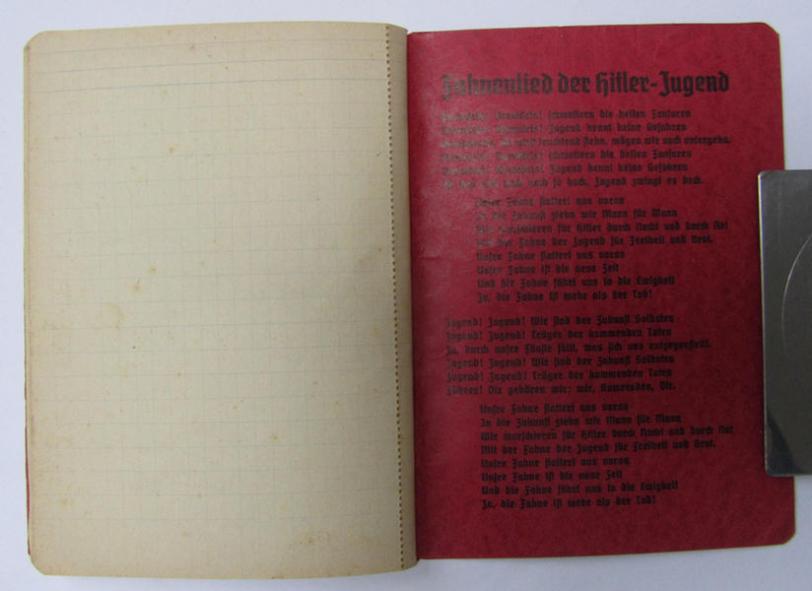 Fahnenlied der Hitler-Jugend
Vorwärts! Vorwärts! schmettern die hellen Fanfaren
Vorwärts! Vorwärts! Jugend kennt keine Gefahren
wirst leuchtend stehn, mögen wir auch untergehn.
Vorwärts! Vorwärts! schmettern die hellen Fanfaren
Vorwärts! Vorwärts! Jugend kennt keine Gefahren
Ist das Ziel auch noch so hoch, Jugend zwingt es doch.
Unsre Fahne flattert uns voran
In die Zukunft ziehn wir Mann für Mann
Wir marschieren für Hitler durch Nacht und durch Not
Mit der Fahne der Jugend für Freiheit und Brot.
Unsre Fahne flattert uns voran
Unsre Fahne ist die neue Zeit
Und die Fahne führt uns in die Ewigkeit
Ja, die Fahne ist mehr als der Tod!
Jugend! Jugend! Wir sind der Zukunft Soldaten
Jugend! Jugend! Träger der kommenden Taten
Ja, durch unsre Fäuste fällt, was sich uns entgegenstellt.
Jugend! Jugend! Wir sind der Zukunft Soldaten
Jugend! Jugend! Träger der kommenden Taten
Führer! Dir gehören wir: wir, Kameraden, Dir.
Unsre Fahne flattert uns voran
In die Zukunft ziehn wir Mann für Mann
Wir marschieren für Hitler durch Nacht und durch Not
Mit der Fahne der Jugend für Freiheit und Brot.
Unsre Fahne flattert uns voran
Unsre Fahne ist die neue Zeit
Und die Fahne führt uns in die Ewigkeit
Ja, die Fahne ist mehr als der Tod!